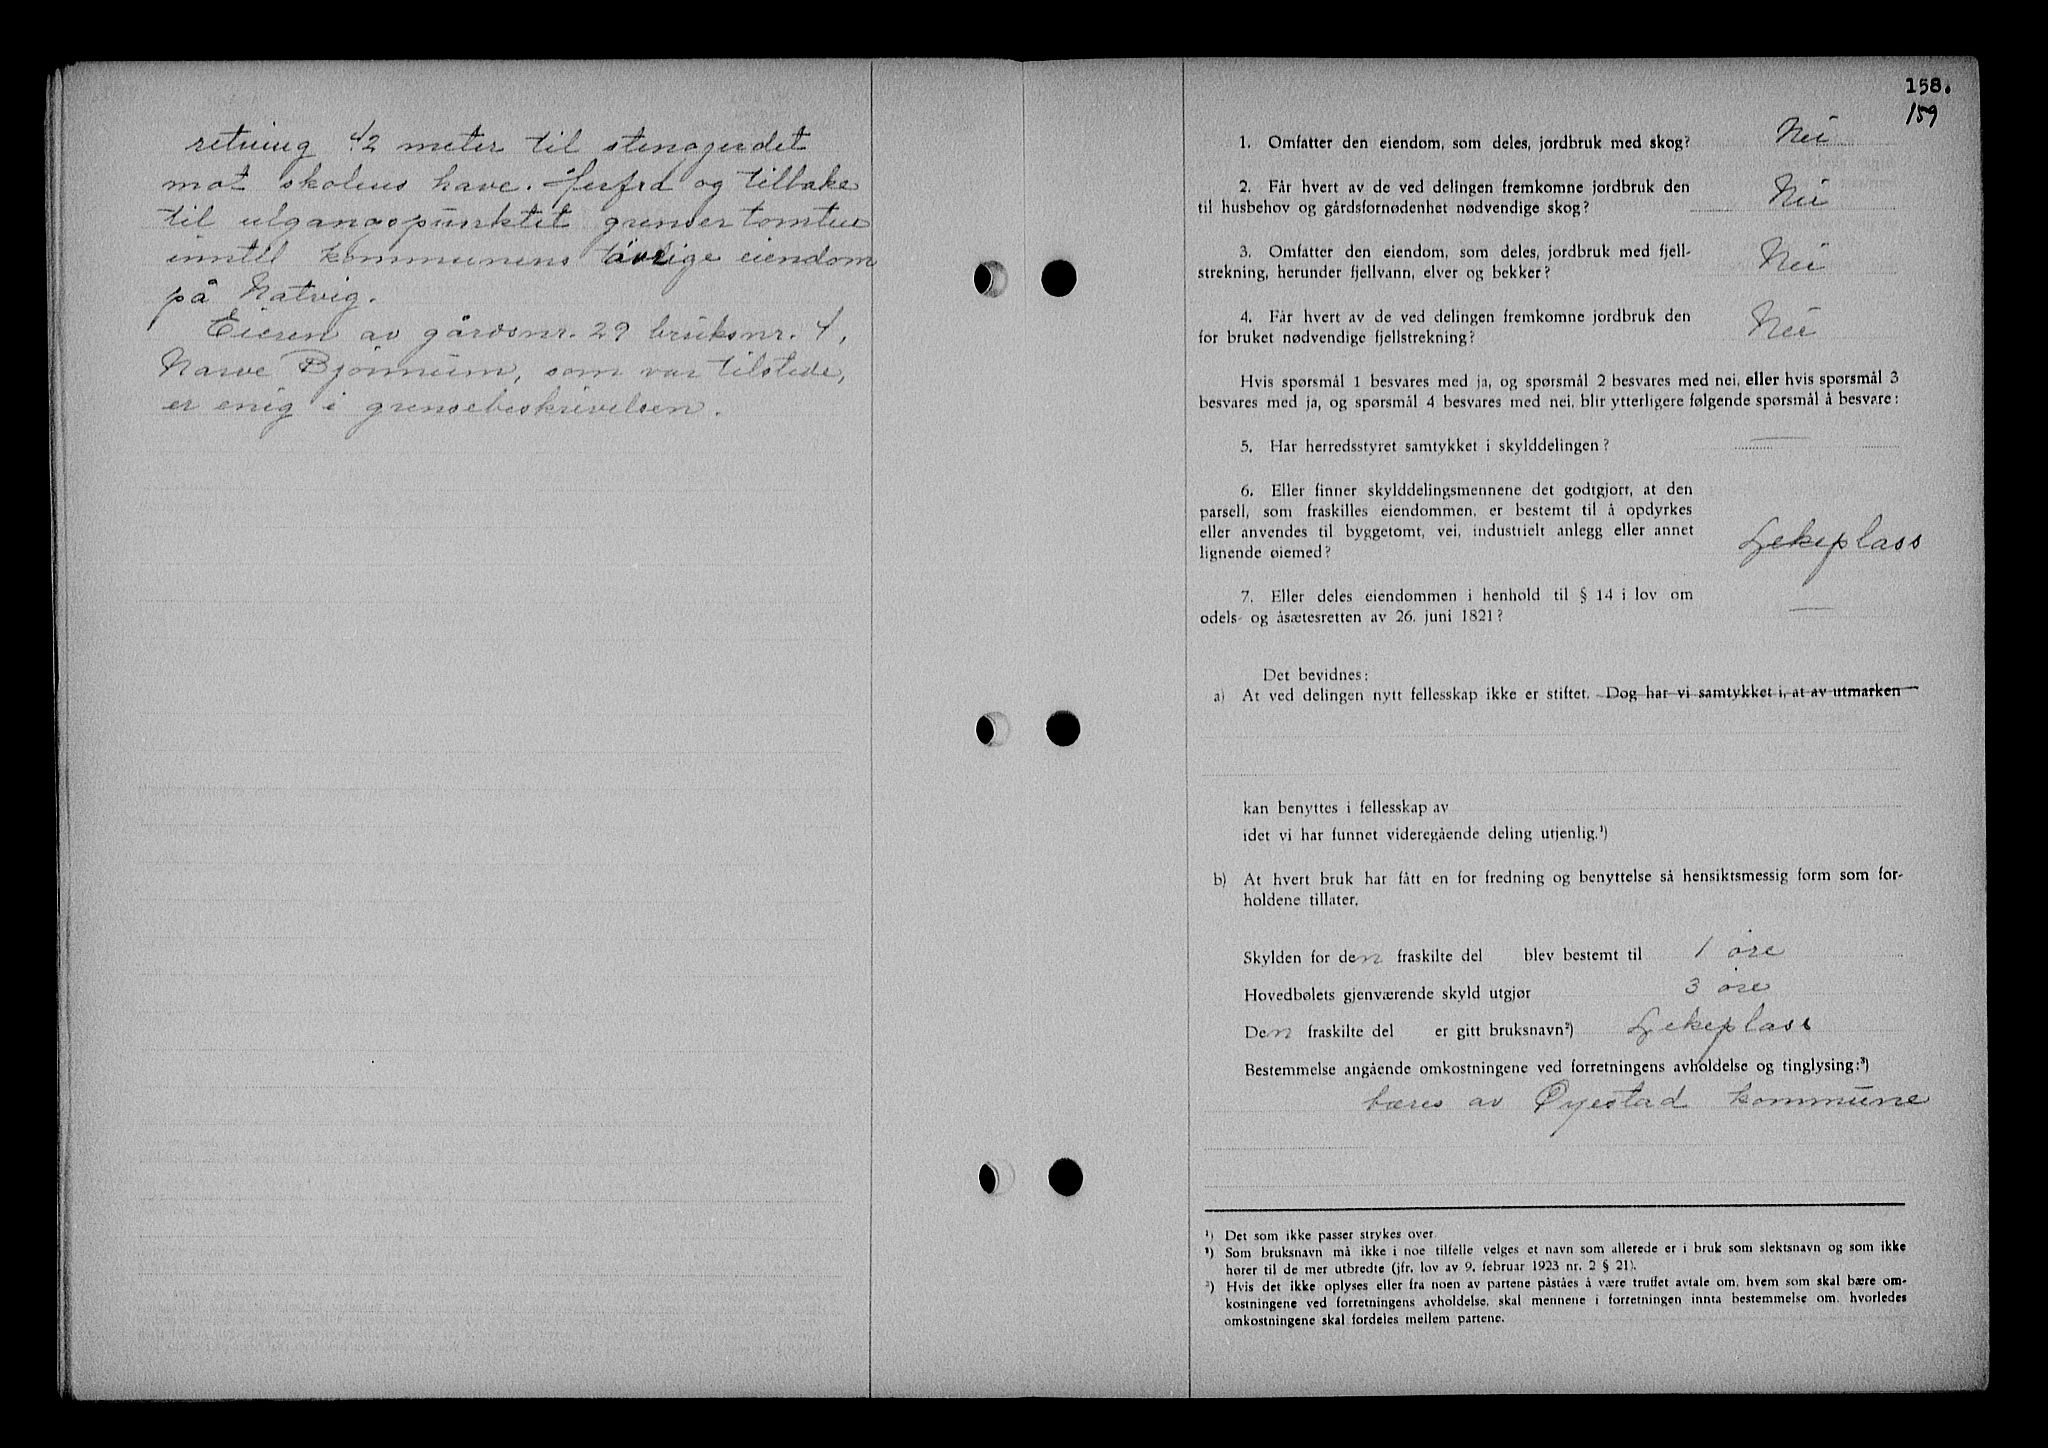 retning 42 meter til stengjerdet
mot skolens have. Herfra og tilbake
til utgangspunktet grenser tomten
inntil kommunens øvrige eiendom
på Natvig.
Eieren av gårdsnr. 29 bruksnr. 4,
Narve Bjørnum, som var tilstede,
er enig i grensebeskrivelsen.
158.
159
1. Omfatter den eiendom, som deles, jordbruk med skog? Nei
2. Får hvert av de ved delingen fremkomne jordbruk den
til husbehov og gårdsfornødenhet nødvendige skog? Nei
3. Omfatter den eiendom, som deles, jordbruk med fjell-
strekning, herunder fjellvann, elver og bekker? Nei
4. Får hvert av de ved delingen fremkomne jordbruk den
for bruket nødvendige fjellstrekning? Nei
Hvis spørsmål 1 besvares med ja, og spørsmål 2 besvares med nei, eller hvis spørsmål 3
besvares med ja, og spørsmål 4 besvares med nei, blir ytterligere følgende spørsmål å besvare:
5. Har herredsstyret samtykket i skylddelingen? —
6. Eller finner skylddelingsmennene det godtgjort, at den
parsell, som fraskilles eiendommen, er bestemt til å opdyrkes
eller anvendes til byggetomt, vei, industrielt anlegg eller annet
lignende øiemed? Lekeplass
7. Eller deles eiendommen i henhold til § 14 i lov om
odels- og åsætesretten av 26. juni 1821? —
Det bevidnes:
a) At ved delingen nytt fellesskap ikke er stiftet. Dog har vi samtykket i, at av utmarken
kan benyttes i fellesskap av
idet vi har funnet videregående deling utjenlig.¹)
b) At hvert bruk har fått en for fredning og benyttelse så hensiktsmessig form som for-
holdene tillater.
Skylden for den fraskilte del blev bestemt til 1 øre
Hovedbølets gjenværende skyld utgjør 3 øre
Den fraskilte del er gitt bruksnavn²) Lekeplass
Bestemmelse angående omkostningene ved forretningens avholdelse og tinglysing:³)
bæres av Øyestad kommune
¹) Det som ikke passer strykes over.
²) Som bruksnavn må ikke i noe tilfelle velges et navn som allerede er i bruk som slektsnavn og som ikke
hører til de mer utbredte (jfr. lov av 9. februar 1923 nr. 2 § 21).
³) Hvis det ikke oplyses eller fra noen av partene påståes å være truffet avtale om, hvem som skal bære om-
kostningene ved forretningens avholdelse, skal mennene i forretningen innta bestemmelse om, hvorledes
omkostningene skal fordeles mellem partene.